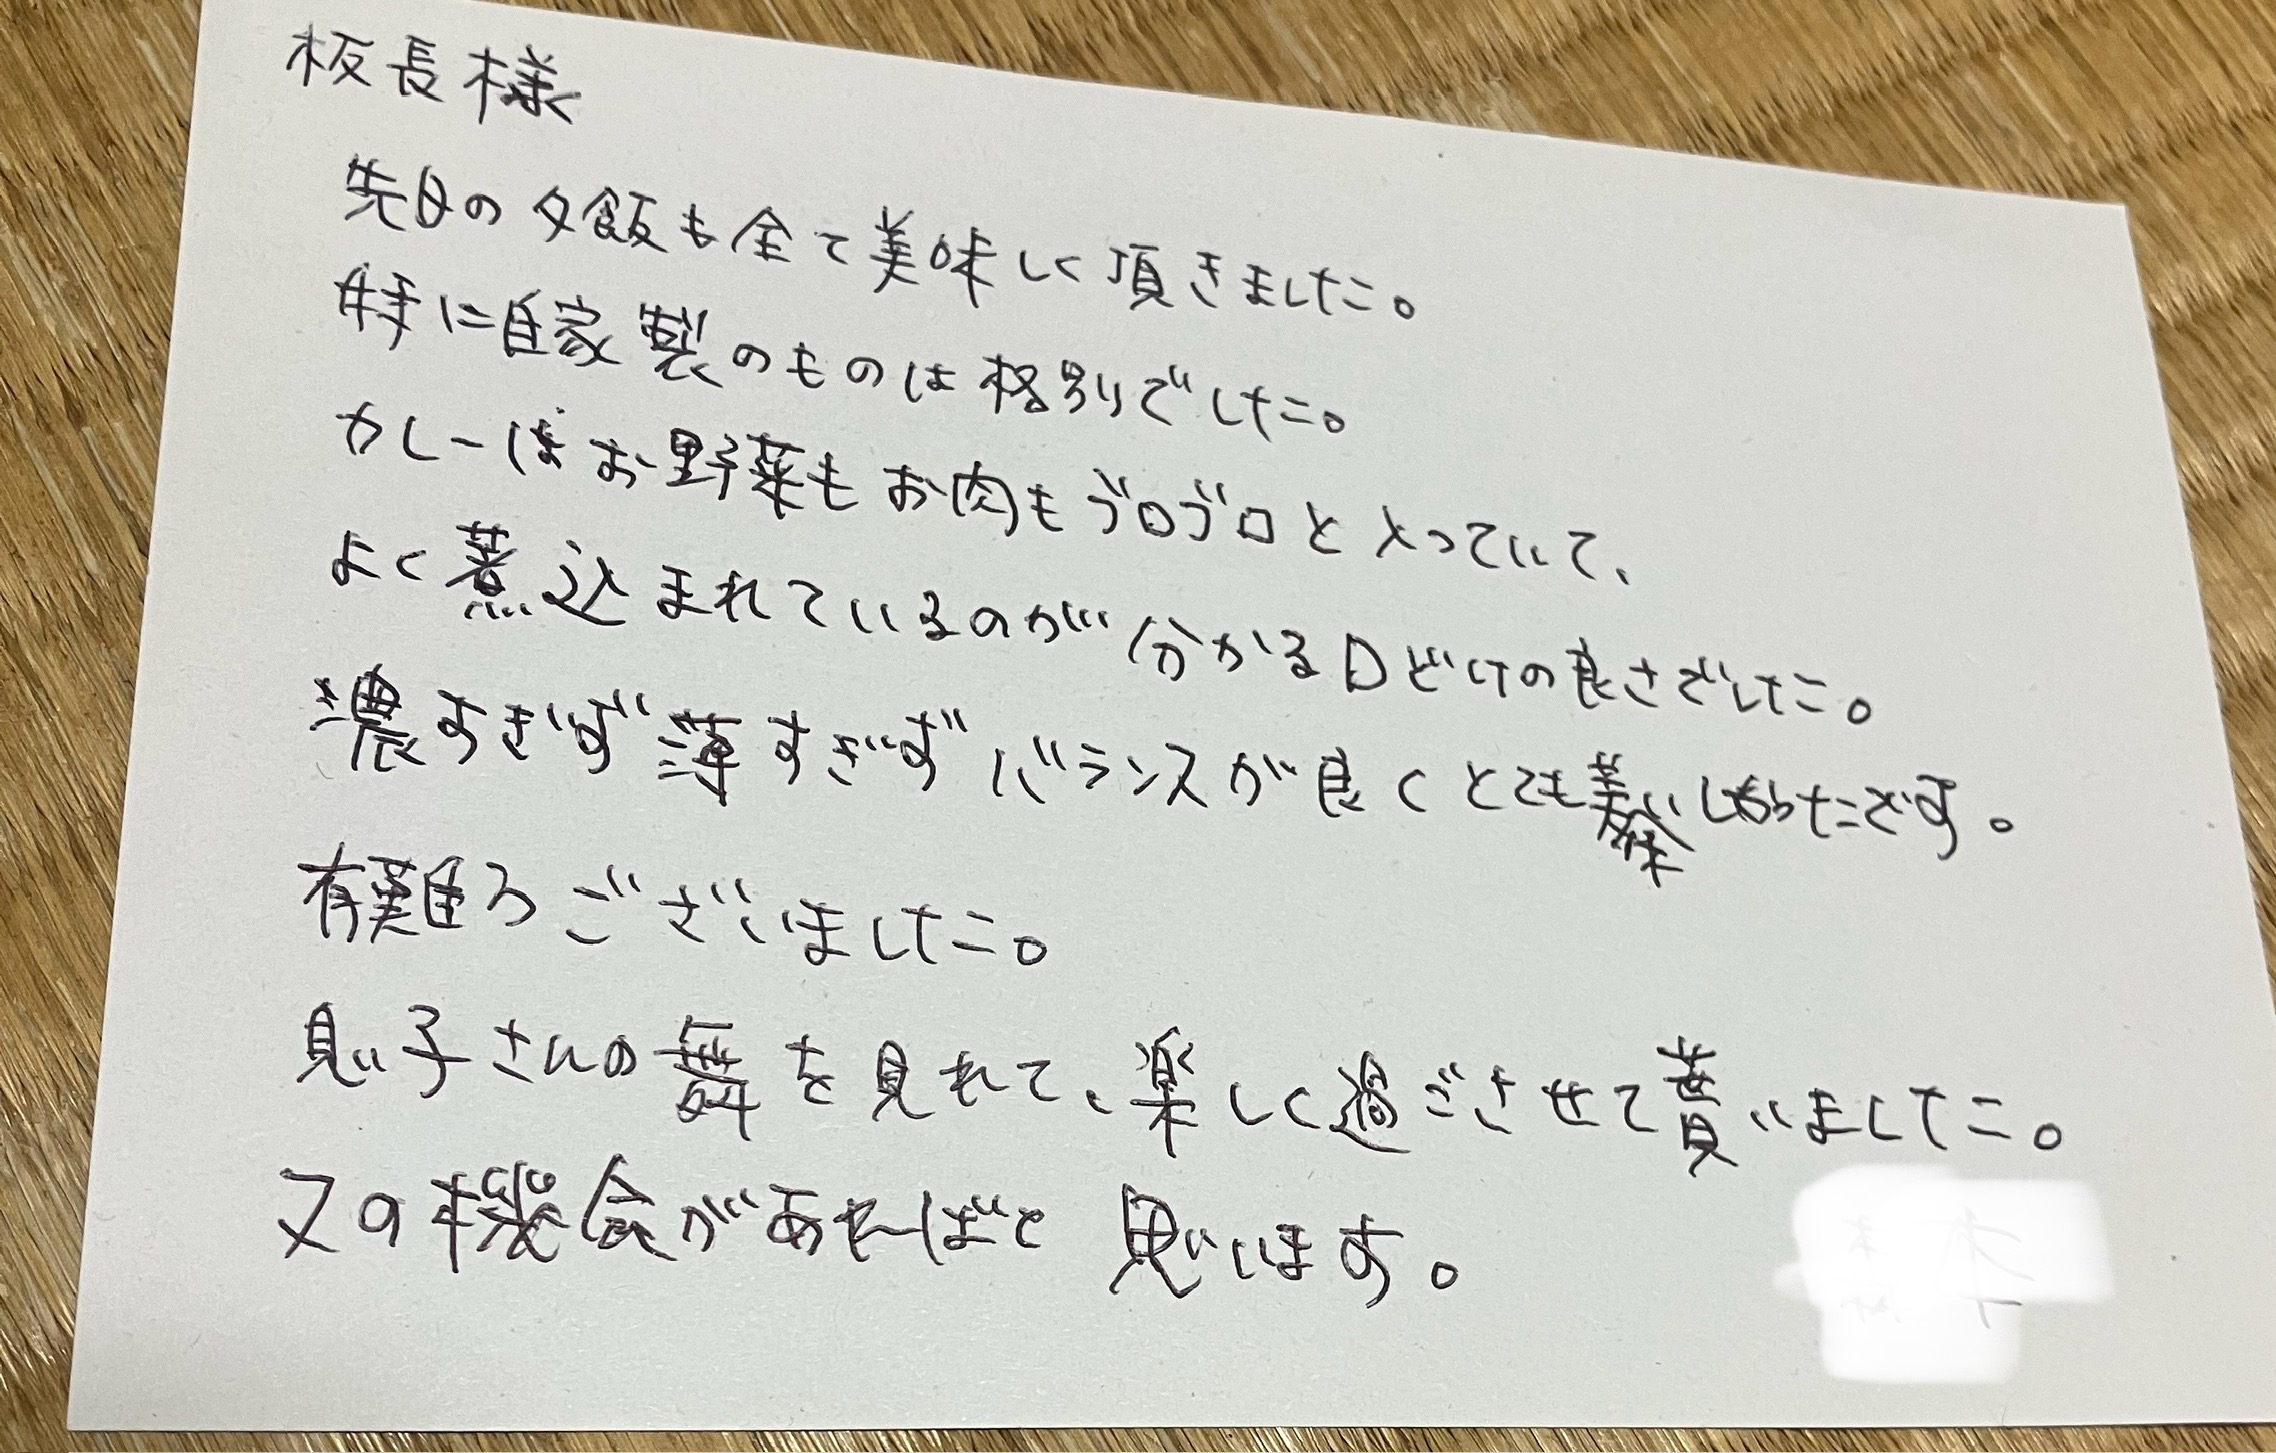 板長様
先日の夕飯も全て美味しく頂きました。
特に自家製のものは格別でした。
カレーはお野菜もお肉もゴロゴロと入っていて、
よく煮込まれているのが分かる口どけの良さでした。
濃すぎず薄すぎずバランスが良くとても美味しかったです。
有難うございました。
息子さんの舞を見れて、楽しく過ごさせて貰いました。
又の機会があればと思います。